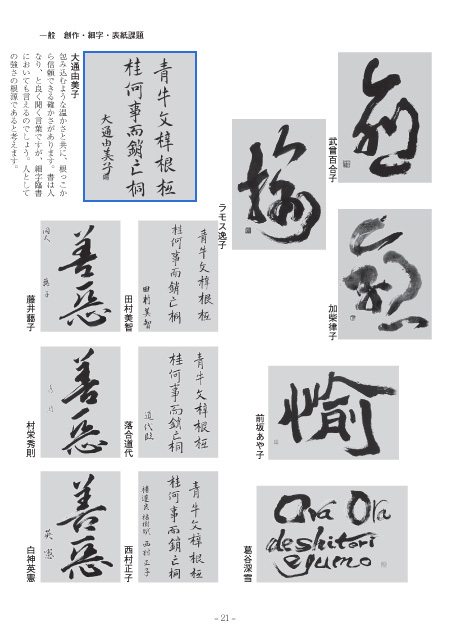 一般　創作・細字・表紙課題
武曽百合子
加柴律子
前坂あや子
葛谷深雪
Ora Ora
deshitori
egumo
ラモス逸子
青牛文梓根柢
桂何事而銷亡桐
大通由美子
大通由美子
包み込むような温かさと共に、根っこか
ら信頼できる確かさがあります。書は人
なり、と良く聞く言葉ですが、細字臨書
においても言えるのでしょう。人として
の強さの根源であると考えます。
青牛文梓根柢
桂何事而銷亡桐
田村美智
田村美智
善惡
藤井藝子
青牛文梓根柢
桂何事而銷亡桐
道代臨
落合道代
善惡
村栄秀則
青牛文梓根柢
桂何事而銷亡桐
西村正子
西村正子
善惡
英憲
白神英憲
－21－